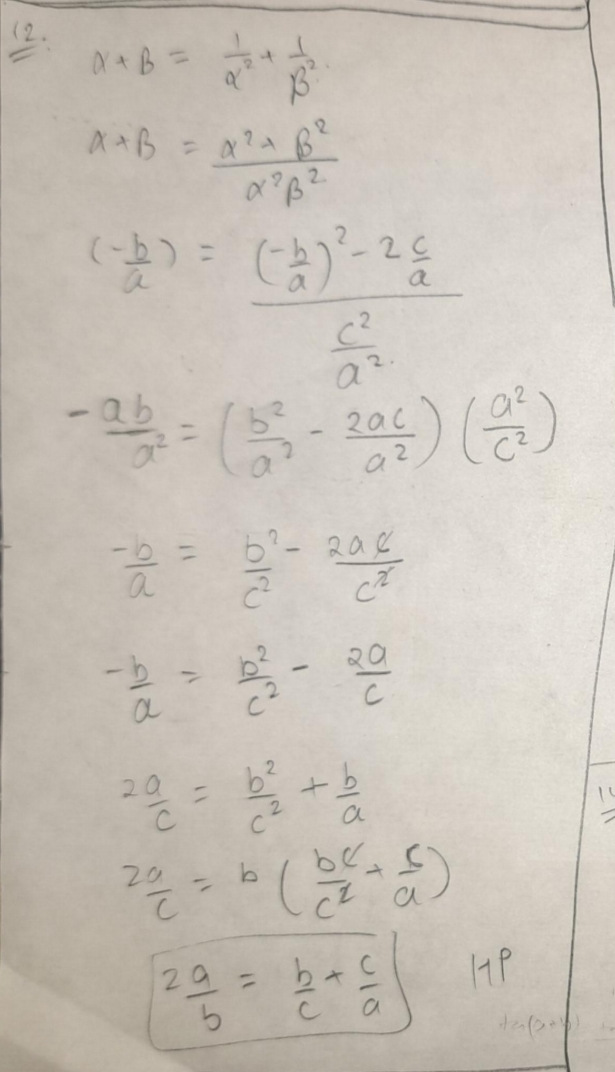 12.
α + β = 1/α² + 1/β²
α + β = (α² + β²)/(α²β²)
(-b/a) = ((-b/a)² - 2 c/a)/(c²/a²)
-ab/a² = (b²/a² - 2ac/a²) (a²/c²)
-b/a = b²/c² - 2ac/c²
-b/a = b²/c² - 2a/c
2a/c = b²/c² + b/a
2a/c = b (bc/c² + c/a)
2a/b = b/c + c/a HP